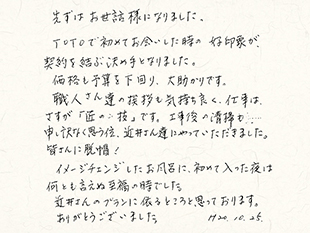 先ずは お世話様になりました。
TOTOで初めてお会いした時の 好印象が、
契約を結ぶ決め手となりました。
価格も予算を下回り、大助かりです。
職人さん達の挨拶も気持ち良く、仕事は、
さすが「匠の技」です。工事後の清掃も……
申し訳なく思う位、近井さん達にやっていただきました。
皆さんに脱帽!
イメージチェンジしたお風呂に、初めて入った夜は
何とも言えぬ至福の時でした。
近井さんのプランに依るところと思っております。
ありがとうございました。 H20.10.25.